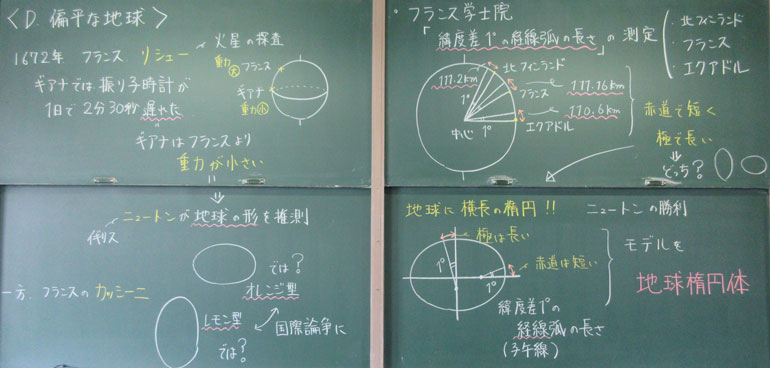 〈D. 偏平な地球〉
1672年 フランス リシェー
火星の探査
ギアナでは振り子時計が
1日で2分30秒遅れた
重力大 フランス
ギアナ
重力小
ギアナはフランスより
重力が小さい
ニュートンが地球の形を推測
イギリス
では?
オレンジ型
一方、フランスのカッシーニ
レモン型
では?
国際論争に
・フランス学士院
「緯度差1°の経線弧の長さ」の測定
・北フィンランド
・フランス
・エクアドル
111.2km
北フィンランド
フランス
111.16km
110.6km
1°
中心
1°
エクアドル
赤道で短く
極で長い
どっち?
地球に横長の楕円!!
ニュートンの勝利
極は長い
1°
赤道は短い
1°
緯度差1°の
経線弧の長さ
(子午線)
モデルを
地球楕円体